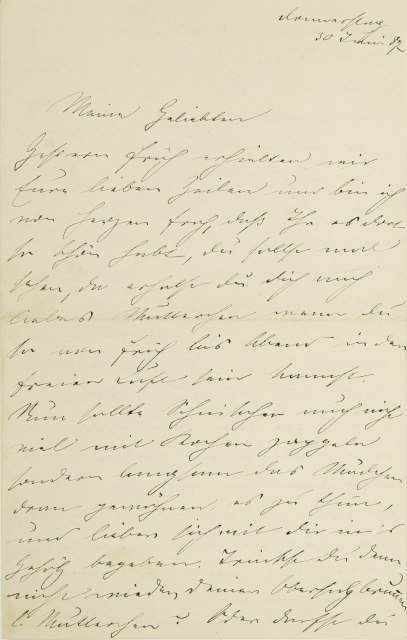 Donnerstag
30 Juni 87
Meine Geliebten
Gestern früh erhielten wir
Eure lieben Zeilen und bin ich
von Herzen froh, daß Ihr es dort
so schön habt, du sollst mal
sehen, da erholst du dich auch
liebes Mutterchen wenn du
so von früh bis Abend in der
freien Luft sein kannst
Nun sollte auch nicht
viel mit Kochen zappeln
sondern langsam das Mädchen
dran gewöhnen es zu thun,
und lieber sich mit dir in's
Gehölz begeben. Trinkst du denn
nicht wieder deinen Obersalzbrunnen
l. Mutterchen? Oder darfst du